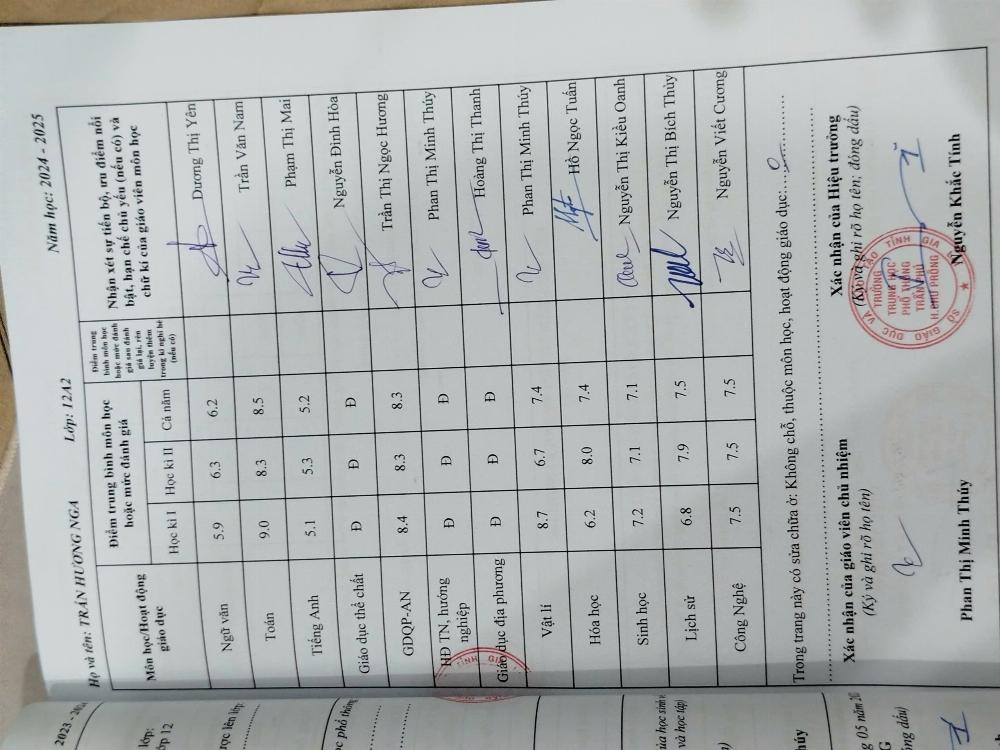 Họ và tên: TRẦN HƯƠNG NGA Lớp: 12A2 Năm học: 2024 - 2025
Môn học/Hoạt động giáo dục
Điểm trung bình môn học hoặc mức đánh giá
Điểm trung bình môn học hoặc mức đánh giá sau đánh giá lại, rèn luyện thêm trong kì nghỉ hè (nếu có)
Nhận xét sự tiến bộ, ưu điểm nổi bật, hạn chế chủ yếu (nếu có) và chữ kí của giáo viên môn học
Học kì I Học kì II Cả năm
Ngữ văn 5.9 6.3 6.2 Dương Thị Yên
Toán 9.0 8.3 8.5 Trần Văn Nam
Tiếng Anh 5.1 5.3 5.2 Phạm Thị Mai
Giáo dục thể chất Đ Đ Đ Nguyễn Đình Hòa
GDQP-AN 8.4 8.3 8.3 Trần Thị Ngọc Hương
HĐ TN, hướng nghiệp Đ Đ Đ Phan Thị Minh Thúy
Giáo dục địa phương Đ Đ Đ Hoàng Thị Thanh
Vật lí 8.7 6.7 7.4 Phan Thị Minh Thúy
Hóa học 6.2 8.0 7.4 Hồ Ngọc Tuấn
Sinh học 7.2 7.1 7.1 Nguyễn Thị Kiều Oanh
Lịch sử 6.8 7.9 7.5 Nguyễn Thị Bích Thủy
Công Nghệ 7.5 7.5 7.5 Nguyễn Viết Cương
Trong trang này có sửa chữa ở: Không chỗ, thuộc môn học, hoạt động giáo dục:....0.....
Xác nhận của giáo viên chủ nhiệm
(Ký và ghi rõ họ tên)
Phan Thị Minh Thúy
Xác nhận của Hiệu trưởng
(Ký và ghi rõ họ tên; đóng dấu)
Nguyễn Khắc Tình
SỞ GIÁO DỤC VÀ ĐÀO TẠO TỈNH GIA LAI
TRƯỜNG
TRUNG HỌC
PHỔ THÔNG
TRẦN PHÚ
H.CHƯ PRÔNG
TỈNH GIA
lớp:
lớp 12